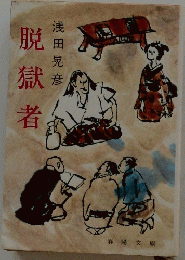 脱獄者
浅田晃彦
春陽文庫